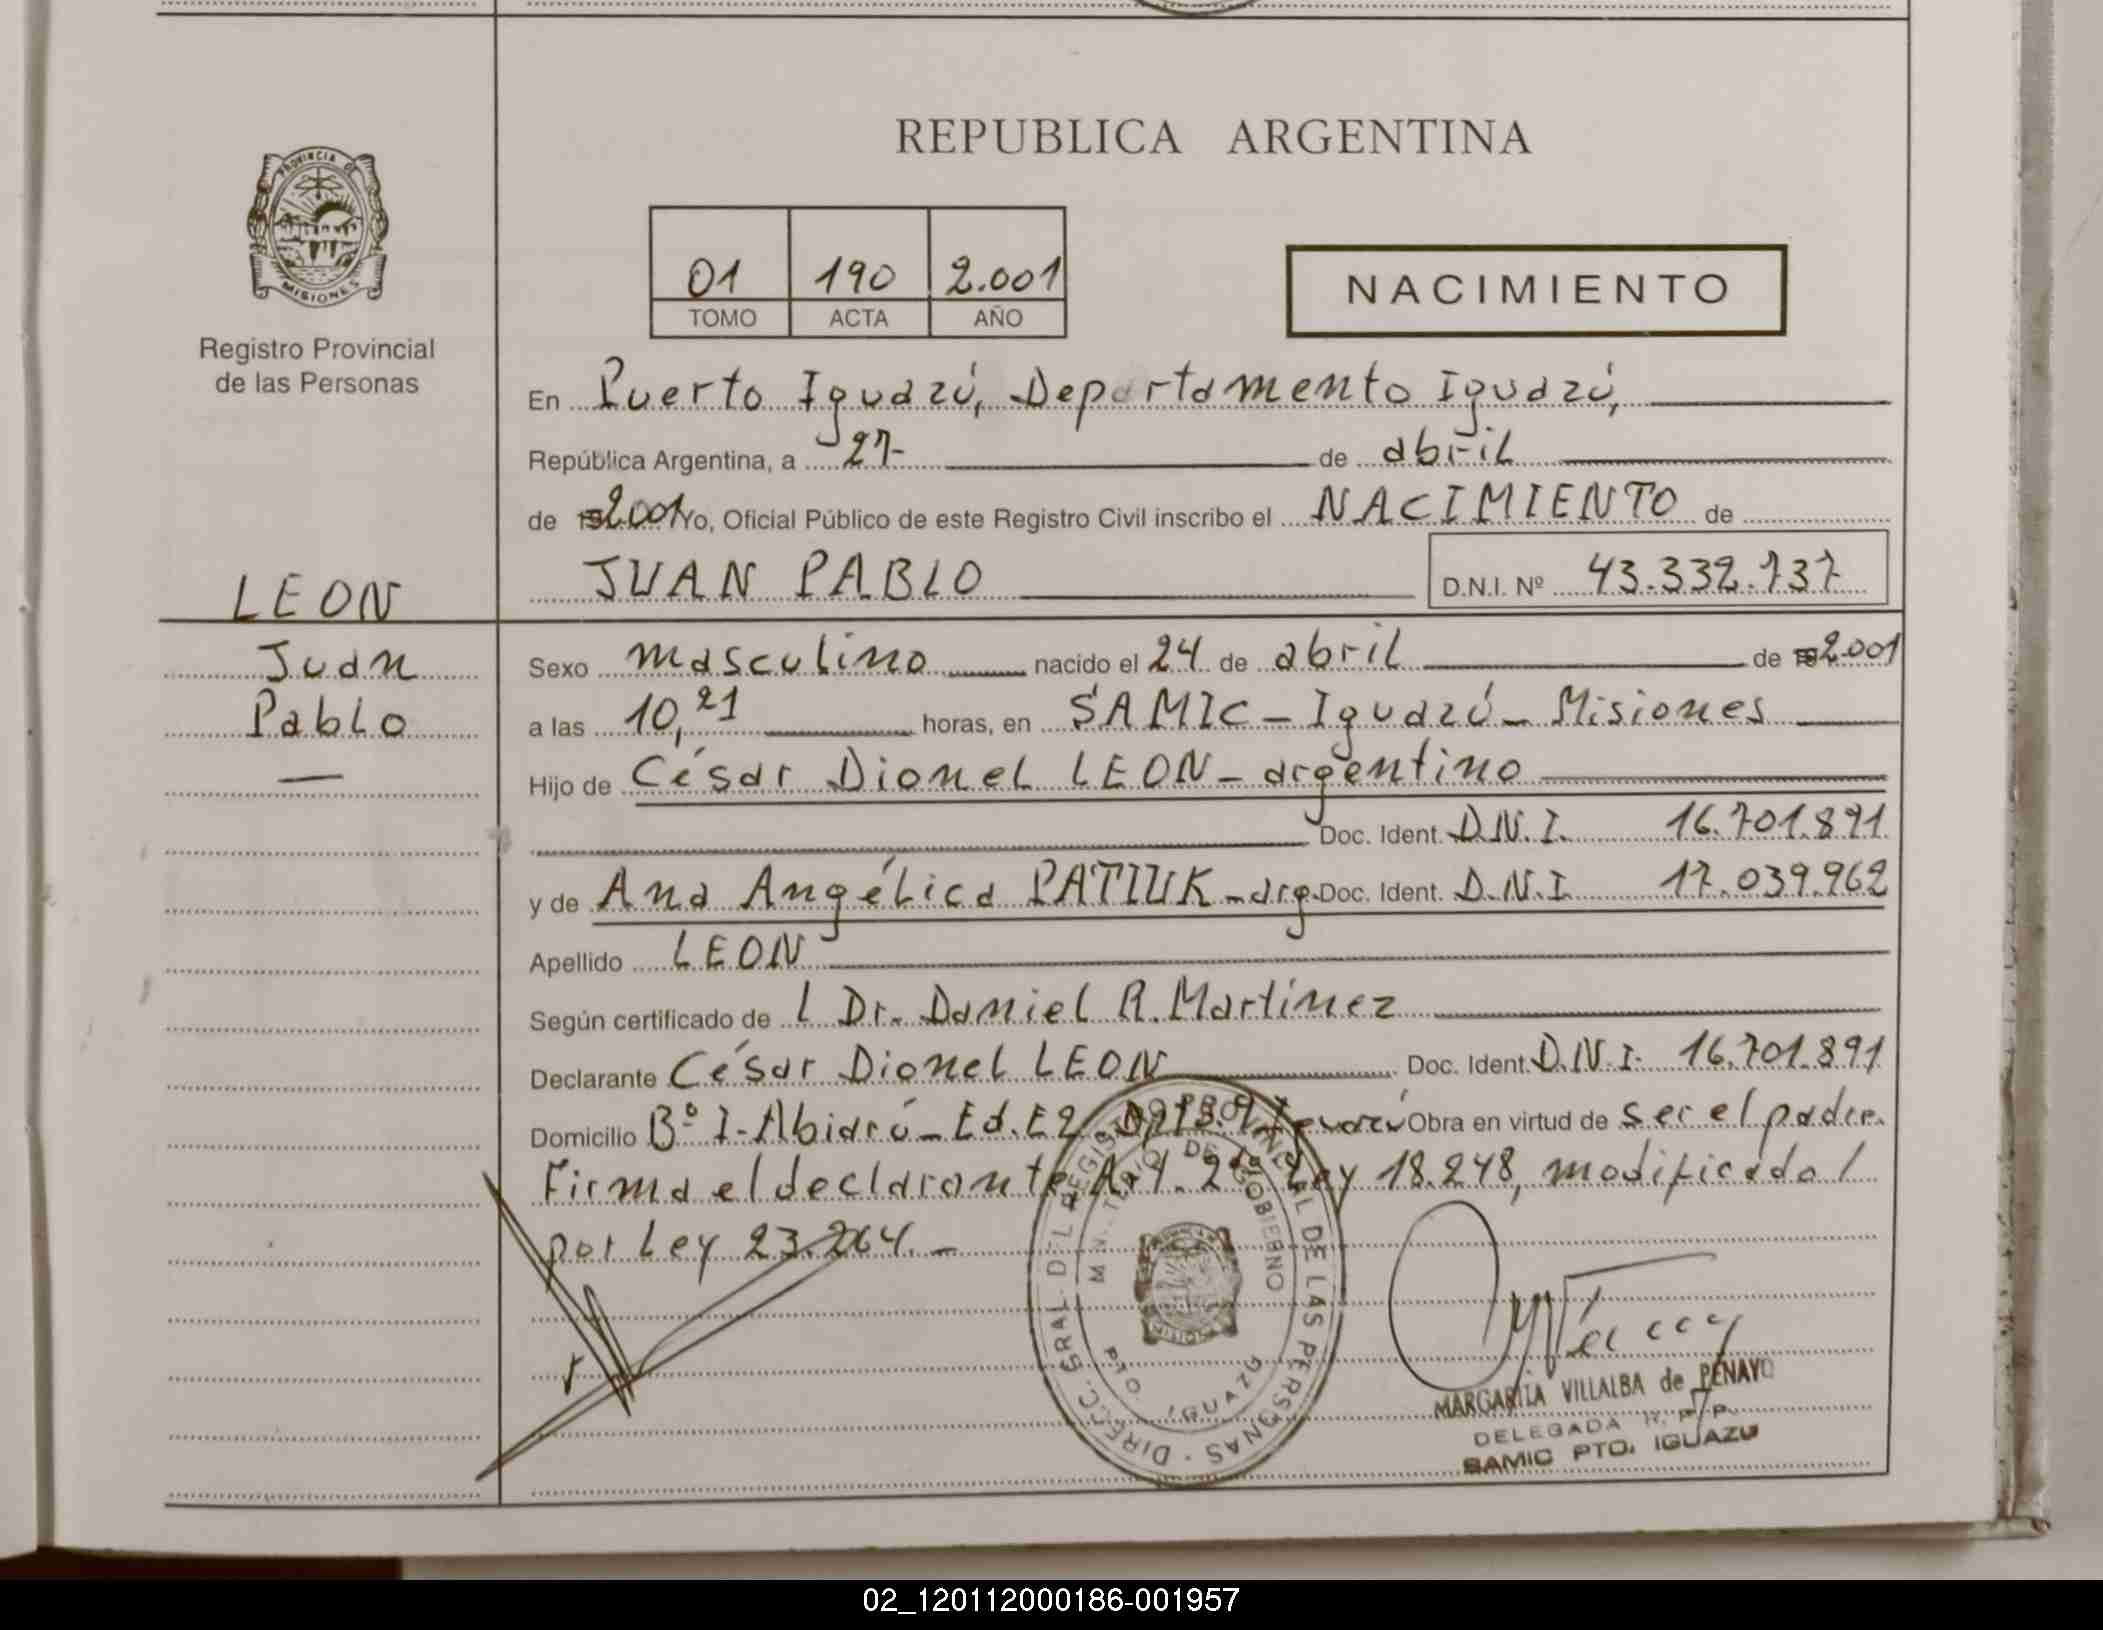 REPUBLICA ARGENTINA
PROVINCIA DE
MISIONES
Registro Provincial
de las Personas
01 190 2.001
TOMO ACTA AÑO
NACIMIENTO
En Puerto Iguazú, Departamento Iguazú,
República Argentina, a 27- de abril
de 2001 Yo, Oficial Público de este Registro Civil inscribo el NACIMIENTO de
JUAN PABLO D.N.I. Nº 43.332.737
LEON
Juan
Pablo
Sexo masculino nacido el 24 de abril de 2.001
a las 10,21 horas, en SAMIC - Iguazú - Misiones
Hijo de César Dionel LEON - argentino
Doc. Ident. D.N.I. 16.701.891
y de Ana Angélica PATIUK - arg. Doc. Ident. D.N.I. 17.039.962
Apellido LEON
Según certificado de l Dr. Daniel R. Martínez
Declarante César Dionel LEON Doc. Ident. D.N.I. 16.701.891
Domicilio Bº 1- Abiarú - Ed. E2 Obra en virtud de ser el padre.
Firma el declarante Art. 2º Ley 18.248, modificado/
por Ley 23.264. -
DIRECC. GRAL DEL REGISTRO PROVINCIAL DE LAS PERSONAS
DE GOBIERNO
PTO IGUAZU
MARGARITA VILLALBA de PENAYO
DELEGADA
SAMIC PTO. IGUAZU
02_120112000186-001957